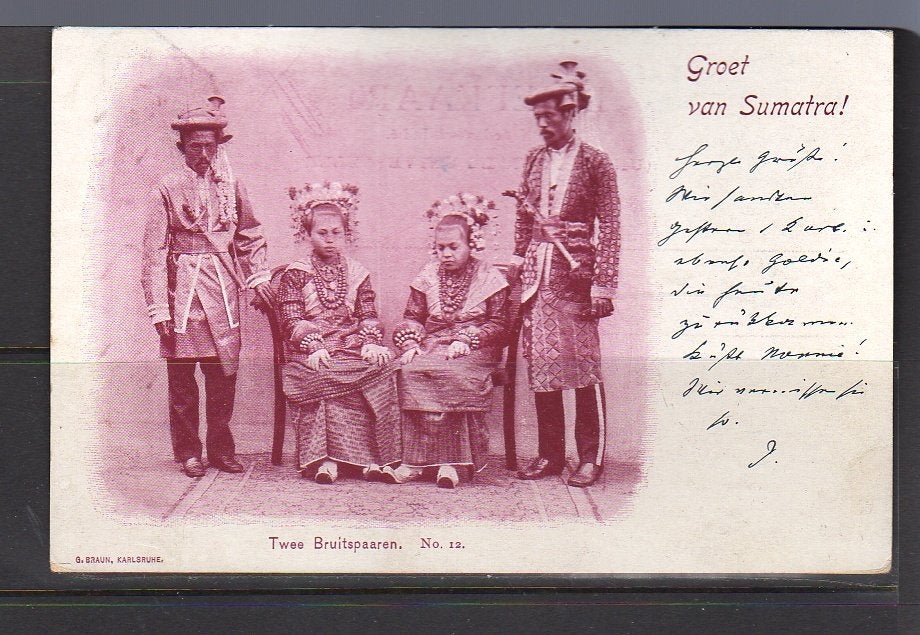 Groet
van Sumatra!
Herzl. Grüße!
Wir sandten
gestern 1 Kart. :
ebenso
die heute
zurückkommen.
Küße Nonnie!
Wir vermissen sie
so.
J.
Twee Bruitspaaren. No. 12.
G. BRAUN, KARLSRUHE.